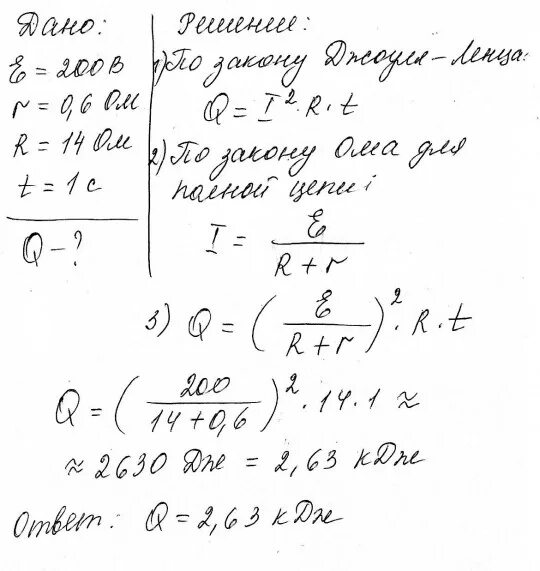 Дано:
Ɛ = 200 В
r = 0,6 Ом
R = 14 Ом
t = 1 с
Q – ?
Решение:
1) По закону Джоуля – Ленца:
Q = I² · R · t
2) По закону Ома для
полной цепи:
I = Ɛ / (R + r)
3) Q = (Ɛ / (R + r))² · R · t
Q = (200 / (14 + 0,6))² · 14 · 1 ≈
≈ 2630 Дж = 2,63 кДж
Ответ: Q = 2,63 кДж